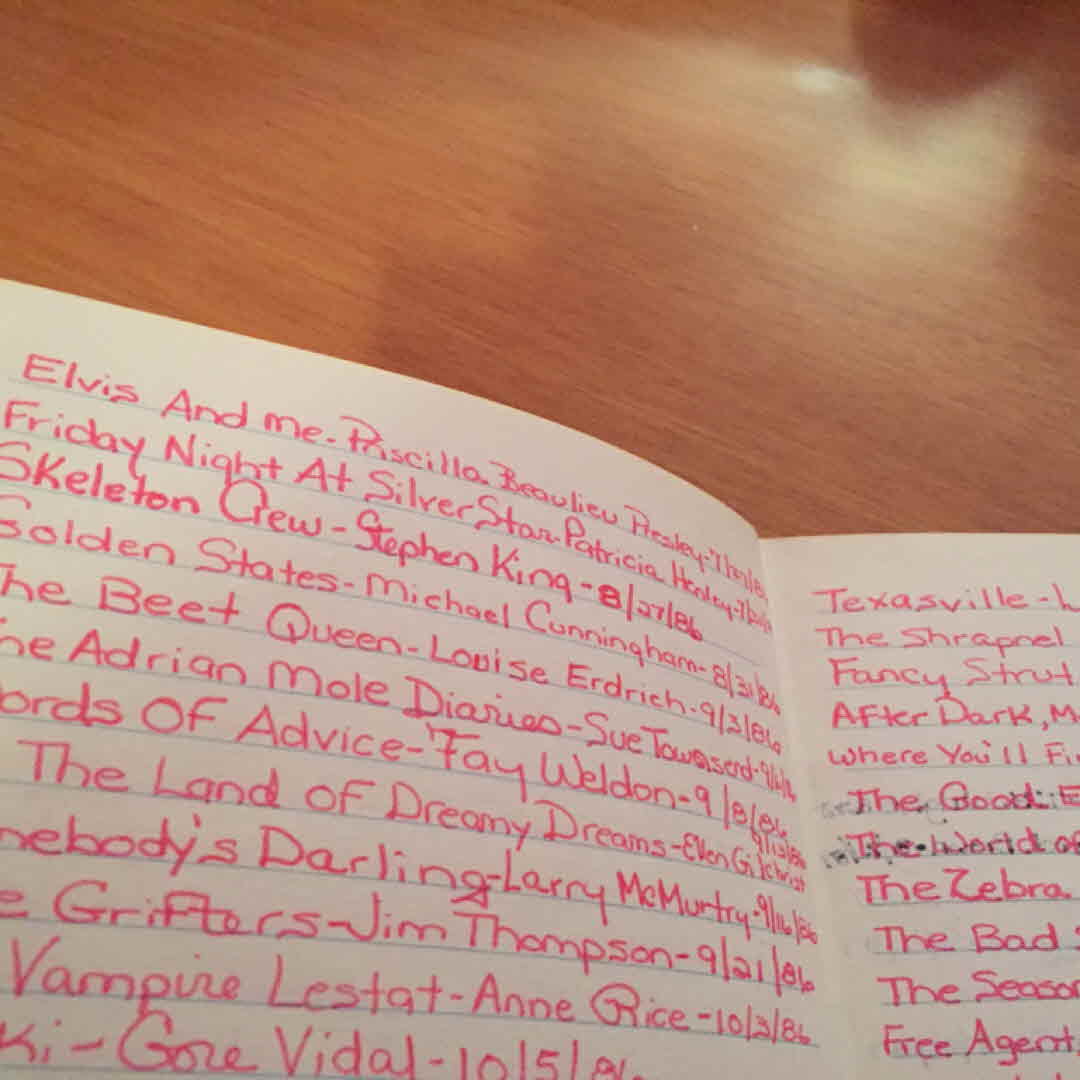 Elvis And Me-Priscilla Beaulieu Presley-
Friday Night At Silver Star-Patricia Henley-
Skeleton Crew-Stephen King-8/27/86
Golden States-Michael Cunningham-8/31/86
The Beet Queen-Louise Erdrich-9/3/86
The Adrian Mole Diaries-Sue Townsend-
ords Of Advice-Fay Weldon-9/8/86
The Land Of Dreamy Dreams-Ellen Gilchrist 9/13/86
mebody's Darling-Larry McMurtry-9/16/86
e Grifters-Jim Thompson-9/21/86
Vampire Lestat-Anne Rice-10/3/86
ki-Gore Vidal-10/5/86
Texasville-L
The Shrapnel
Fancy Strut
After Dark, M
Where You'll Fi
The Good E
The World of
The Zebra
The Bad S
The Season
Free Agent,